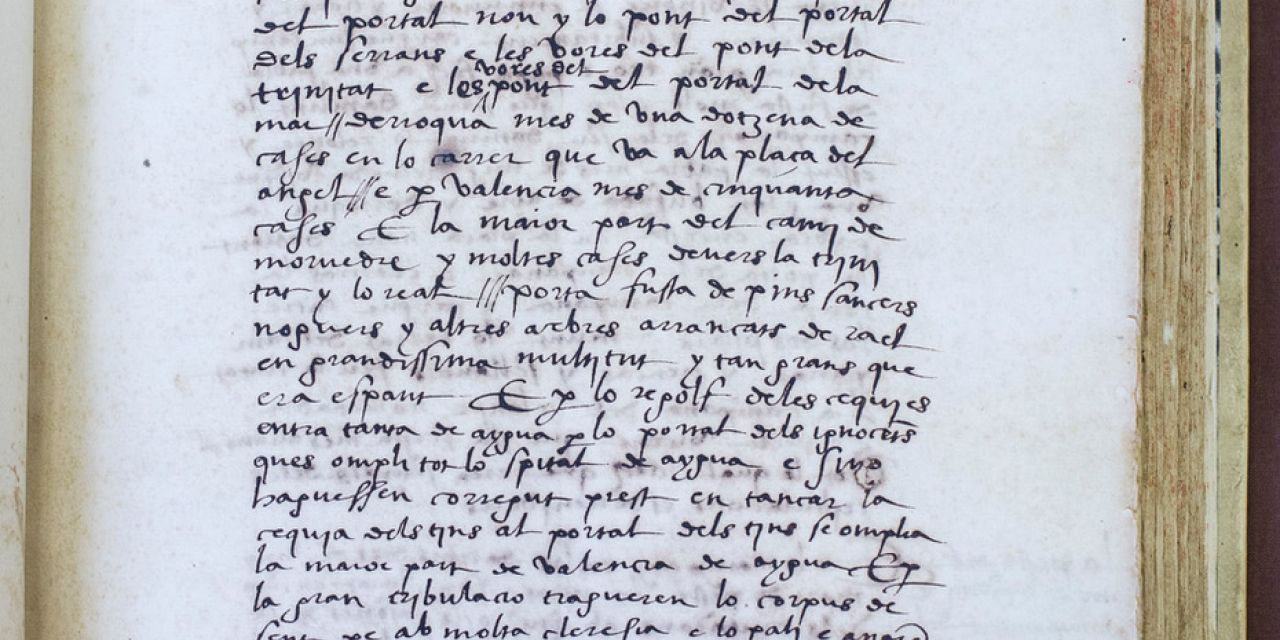 del portal nou y lo pont del portal
dels serrans e les vores del pont dela
vores del
trinitat e les pont del portal dela
mar // derroqua mes de vna dotzena de
cases en lo carrer que va ala plaça del
angel // e p valencia mes de cinquanta
cases E la maior part del cami de
morvedre y moltes cases devers la trini
tat y lo real /// porta fusta de pins sancers
noguers y altres arbres arrancats de rael
en grandissima multitut y tan grans que
era espant E p lo regolf deles cequies
entra tanta de aygua p lo portal dels ignocets
ques ompli tot lo spital de aygua e sino
haguessen corregut prest en tancar la
cequia dels tins al portal dels tins se omplia
la maior part de valencia de aygua E p
la gran tribulacio tragueren lo corpus de
sent pe ab molta cleresia e lo pali e